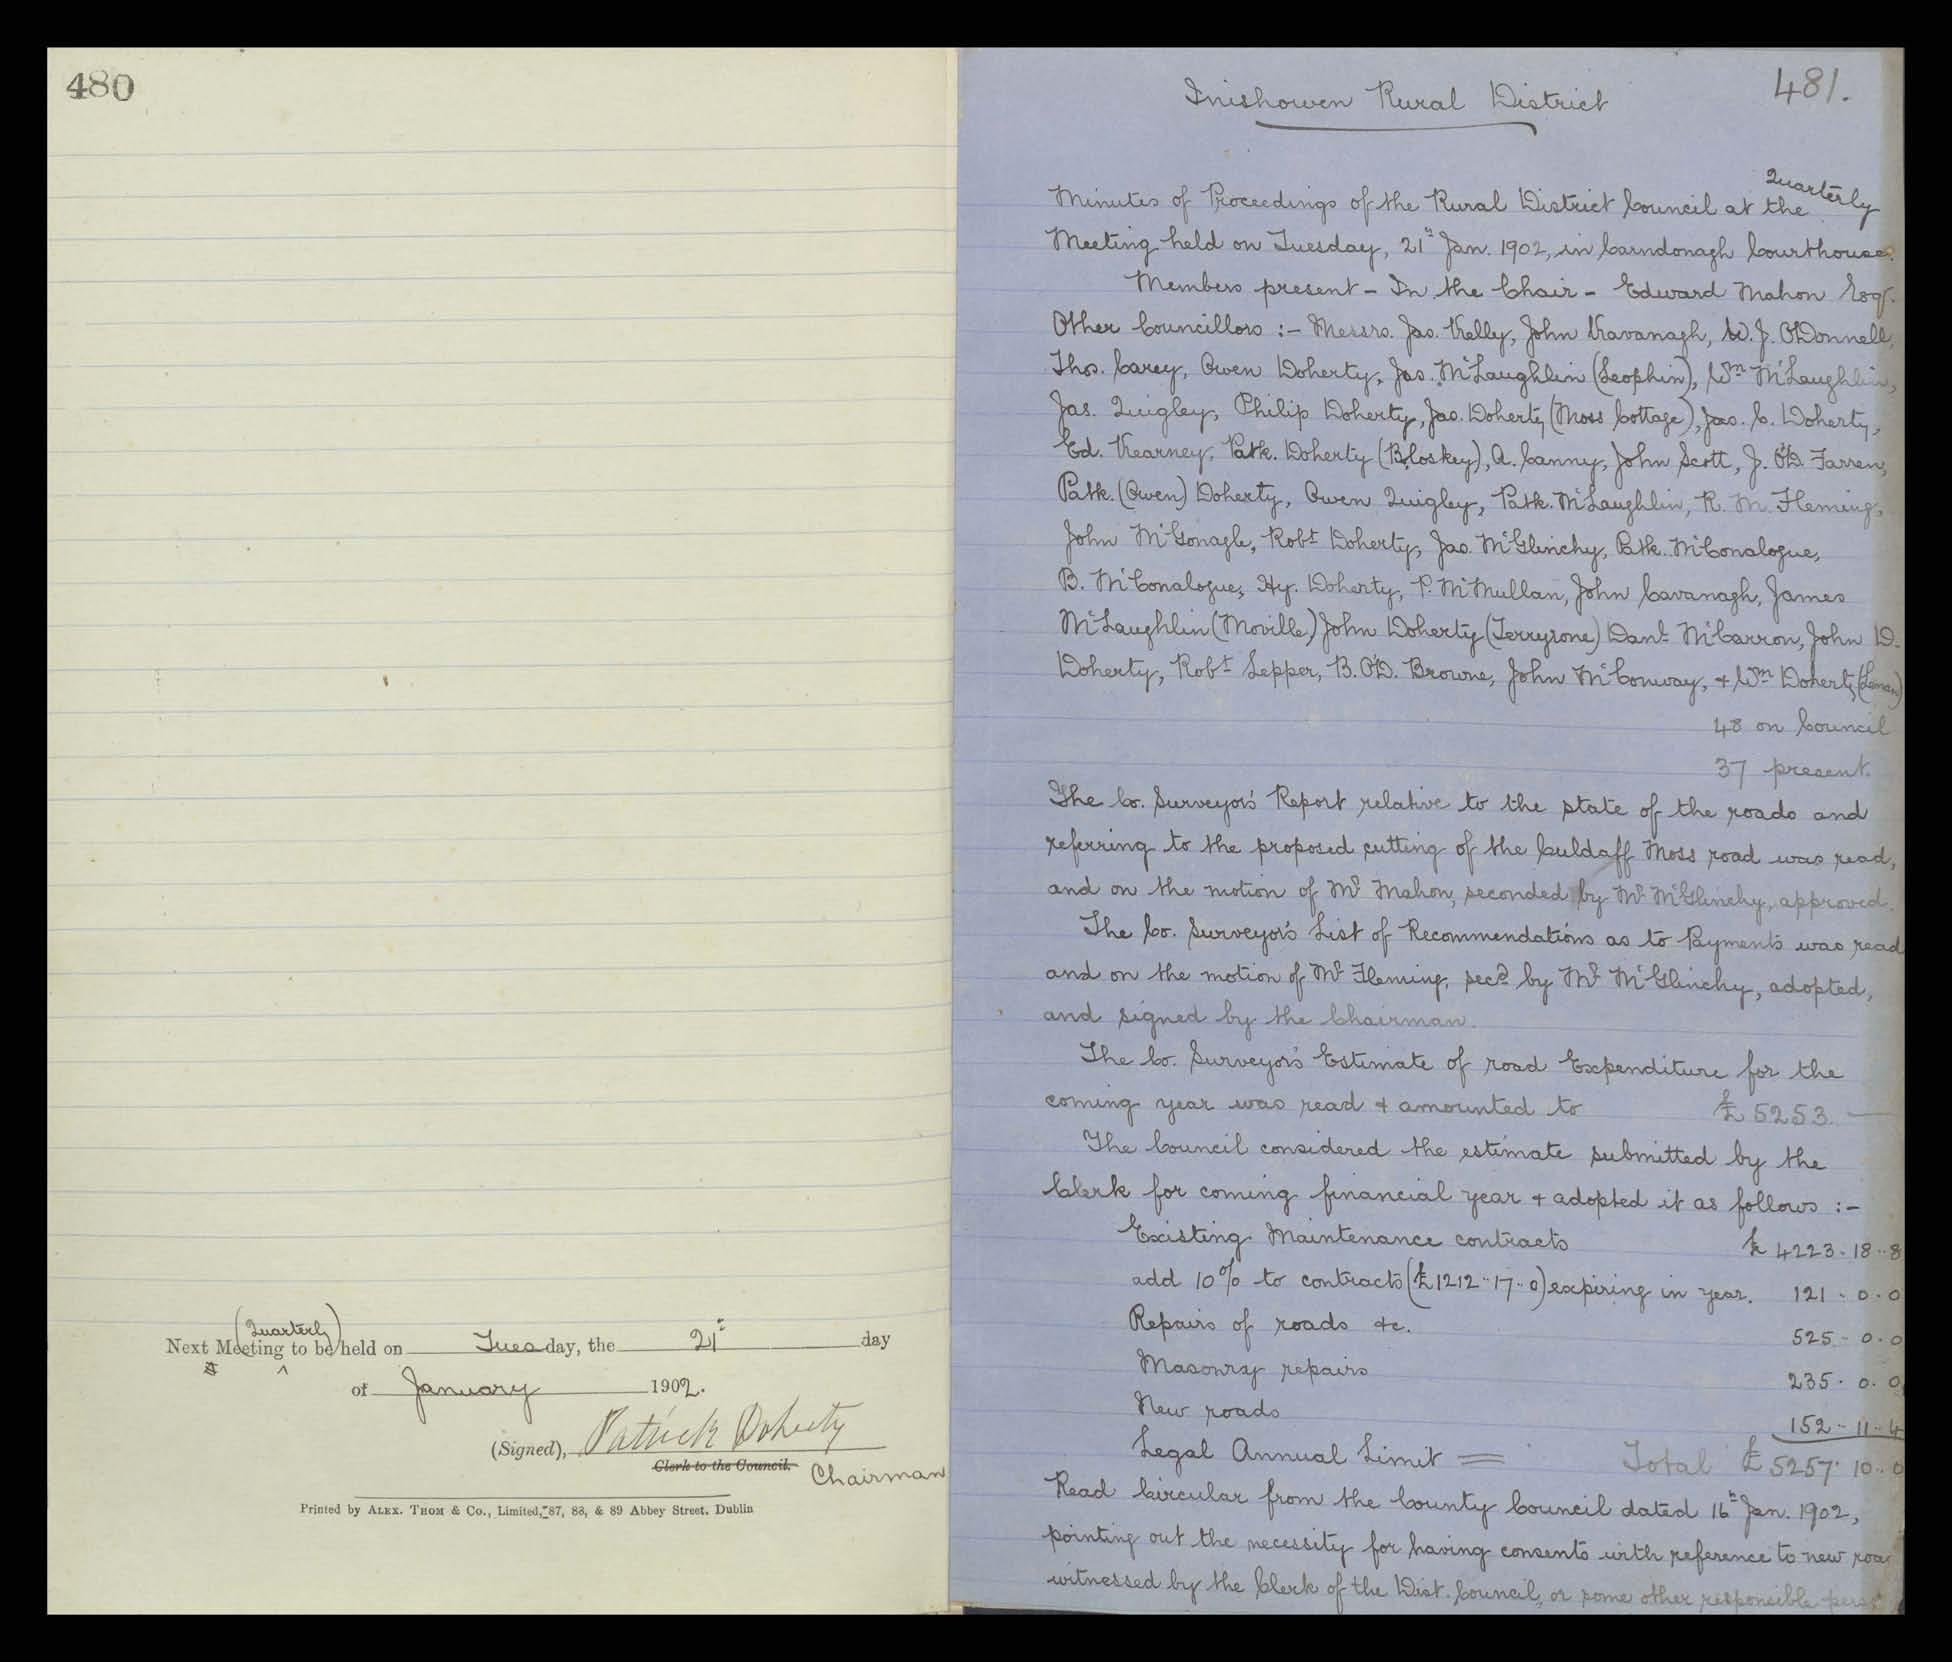 480
(Quarterly)
Next Meeting to be held on Tuesday, the 21st day
of January 1902.
(Signed), Patrick Doherty
Clerk to the Council. Chairman
Printed by ALEX. THOM & Co., Limited, 87, 88, & 89 Abbey Street, Dublin
481.
Inishowen Rural District
Quarterly
Minutes of Proceedings of the Rural District Council at the
Meeting held on Tuesday, 21st Jan. 1902, in Carndonagh Courthouse.
Members present - In the Chair - Edward Mahon Esqr.
Other Councillors :- Messrs. Jas. Kelly, John Kavanagh, W. J. O'Donnell,
Thos. Carey, Owen Doherty, Jas. McLaughlin (Leophin), Wm McLaughlin,
Jas. Quigley, Philip Doherty, Jas. Doherty (Moss Cottage), Jas. C. Doherty,
Ed. Kearney, Patk. Doherty (B.loskey), A. Canny, John Scott, J. O'D. Farren,
Patk. (Owen) Doherty, Owen Quigley, Patk. McLaughlin, R. M. Fleming,
John McGonagle, Robt Doherty, Jas. McGlinchy, Patk. McConalogue,
B. McConalogue, Hy. Doherty, P. McMullan, John Cavanagh, James
McLaughlin (Moville) John Doherty (Terryrone) Danl McCarron, John D.
Doherty, Robt Lepper, B. O'D. Browne, John McConway, + Wm Doherty
48 on Council
37 present.
The Co. Surveyor's Report relative to the state of the roads and
referring to the proposed cutting of the Culdaff Moss road was read,
and on the motion of Mr Mahon, seconded by Mr McGlinchy, approved.
The Co. Surveyor's List of Recommendations as to Payments was read
and on the motion of Mr Fleming, secd by Mr McGlinchy, adopted,
and signed by the Chairman.
The Co. Surveyor's Estimate of road Expenditure for the
coming year was read + amounted to £ 5253. —
The Council considered the estimate submitted by the
Clerk for coming financial year + adopted it as follows :-
Existing Maintenance contracts £ 4223 . 18 .. 8
add 10% to contracts (£1212 .. 17 .. 0) expiring in year. 121 . 0 . 0
Repairs of roads &c. 525 . 0 . 0
Masonry repairs 235 . 0 . 0
New roads 152 .. 11 .. 4
Legal Annual Limit = Total £ 5257 . 10 .. 0
Read Circular from the County Council dated 16th Jan. 1902,
pointing out the necessity for having consents with reference to new roa
witnessed by the Clerk of the Dist. Council, or some other responsible pers